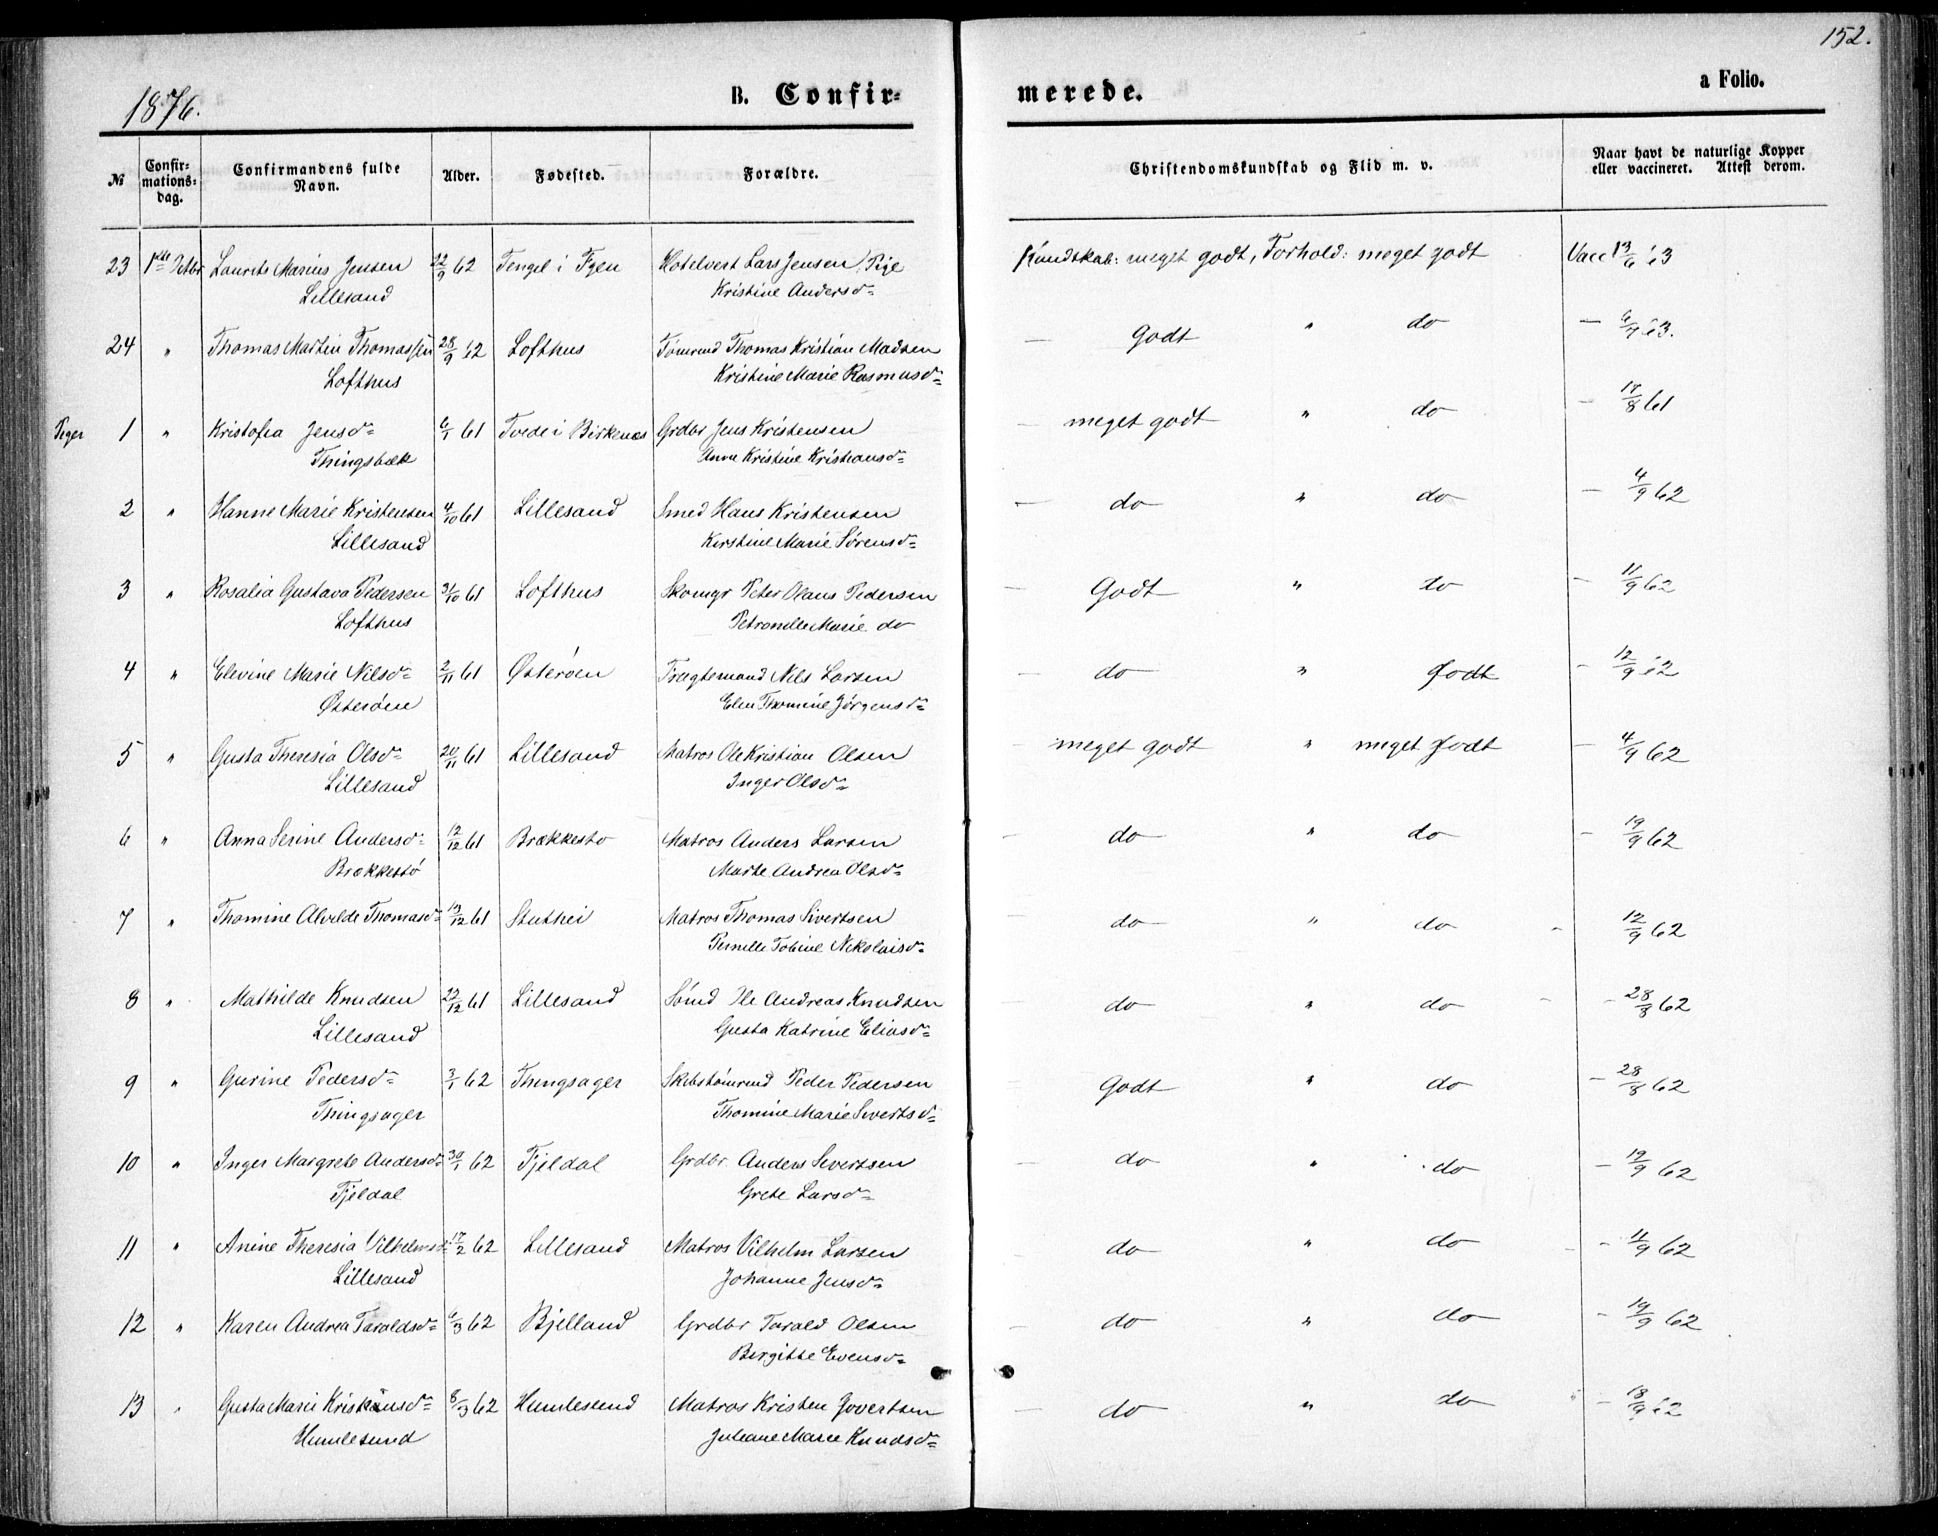 152.
1876.
B. Confirmerede.
a Folio.
№ Confirmationsdag. Confirmandens fulde Navn. Alder. Fødested. Forældre. Christendomskundskab og Flid m. v. Naar havt de naturlige Kopper eller vaccineret. Attest derom.
23 1ste Oktbr Laurits Marius Jensen 22/9 62 Tengel i Fyen Hotelvert Lars Jensen Kundskab: meget godt, Forhold: meget godt Vacc 13/6 63
Lillesand Kristine Andersd
24 " Thomas Martin Thomassen 28/9 62 Lofthus Tømrmd Thomas Kristian Madsen — Godt " do — 6/9 63.
Lofthus Kristine Marie Rasmusd
Piger 1 " Kristofia Jensd 6/1 61 Tvede i Birkenæs Grdbr Jens Kristensen — meget godt " do — 17/8 61
Thingsbæk Anne Kristine Kristiansd
2 " Hanne Marie Kristensen 4/10 61 Lillesand Smed Hans Kristensen — do " do — 4/9 62
Lillesand Kirstine Marie Sørensd
3 " Rosalia Gustava Pedersen 31/10 61 Lofthus Skomgr Peter Olaus Pedersen — Godt " do — 11/9 62
Lofthus Petronelle Marie do
4 " Elevine Marie Nilsd 2/11 61 Østerøen Fragtemand Nils Larsen — do " Godt — 12/9 62
Østerøen Elen Thomine Jørgensd
5 " Gusta Theresia Olsd 20/11 61 Lillesand Matros Ole Kristian Olsen — meget godt " meget Godt — 4/9 62
Lillesand Inger Olsd
6 " Anna Serine Andersd 12/12 61 Brækkestø Matros Anders Larsen — do " do — 19/9 62
Brækkestø Marte Andrea Olsd
7 " Thomine Alvilde Thomasd 13/12 61 Stuthei Matros Thomas Sivertsen do " do — 12/9 62
Pernille Tobine Nikolaisd
8 " Mathilde Knudsen 23/12 61 Lillesand Sømd Ole Andreas Knudsen — do " do — 28/8 62
Lillesand Gusta Katrine Eliasd
9 " Gurine Pedersd 3/1 62 Thingsager Skibstømrmd Peder Pedersen Godt " do — 28/8 62
Thingsager Thomine Marie Sivertsd
10 " Inger Margrete Andersd 30/1 62 Fjeldal Grdbr Anders Sivertsen — do " do — 12/9 62
Fjeldal Grete Larsd
11 " Anine Theresia Vilhelmsd 17/2 62 Lillesand Matros Vilhelm Larsen — do " do — 4/9 62
Lillesand Johanne Jensd
12 " Karen Andrea Taraldsd 6/3 62 Bjelland Grdbr Tarald Olsen — do " do — 19/9 62
Birgitte Evensd
13 " Gusta Marie Kristensd 8/3 62 Humlesund Matros Kristen Govertsen — do " do — 18/9 62
Humlesund Juliane Marie Knudsd